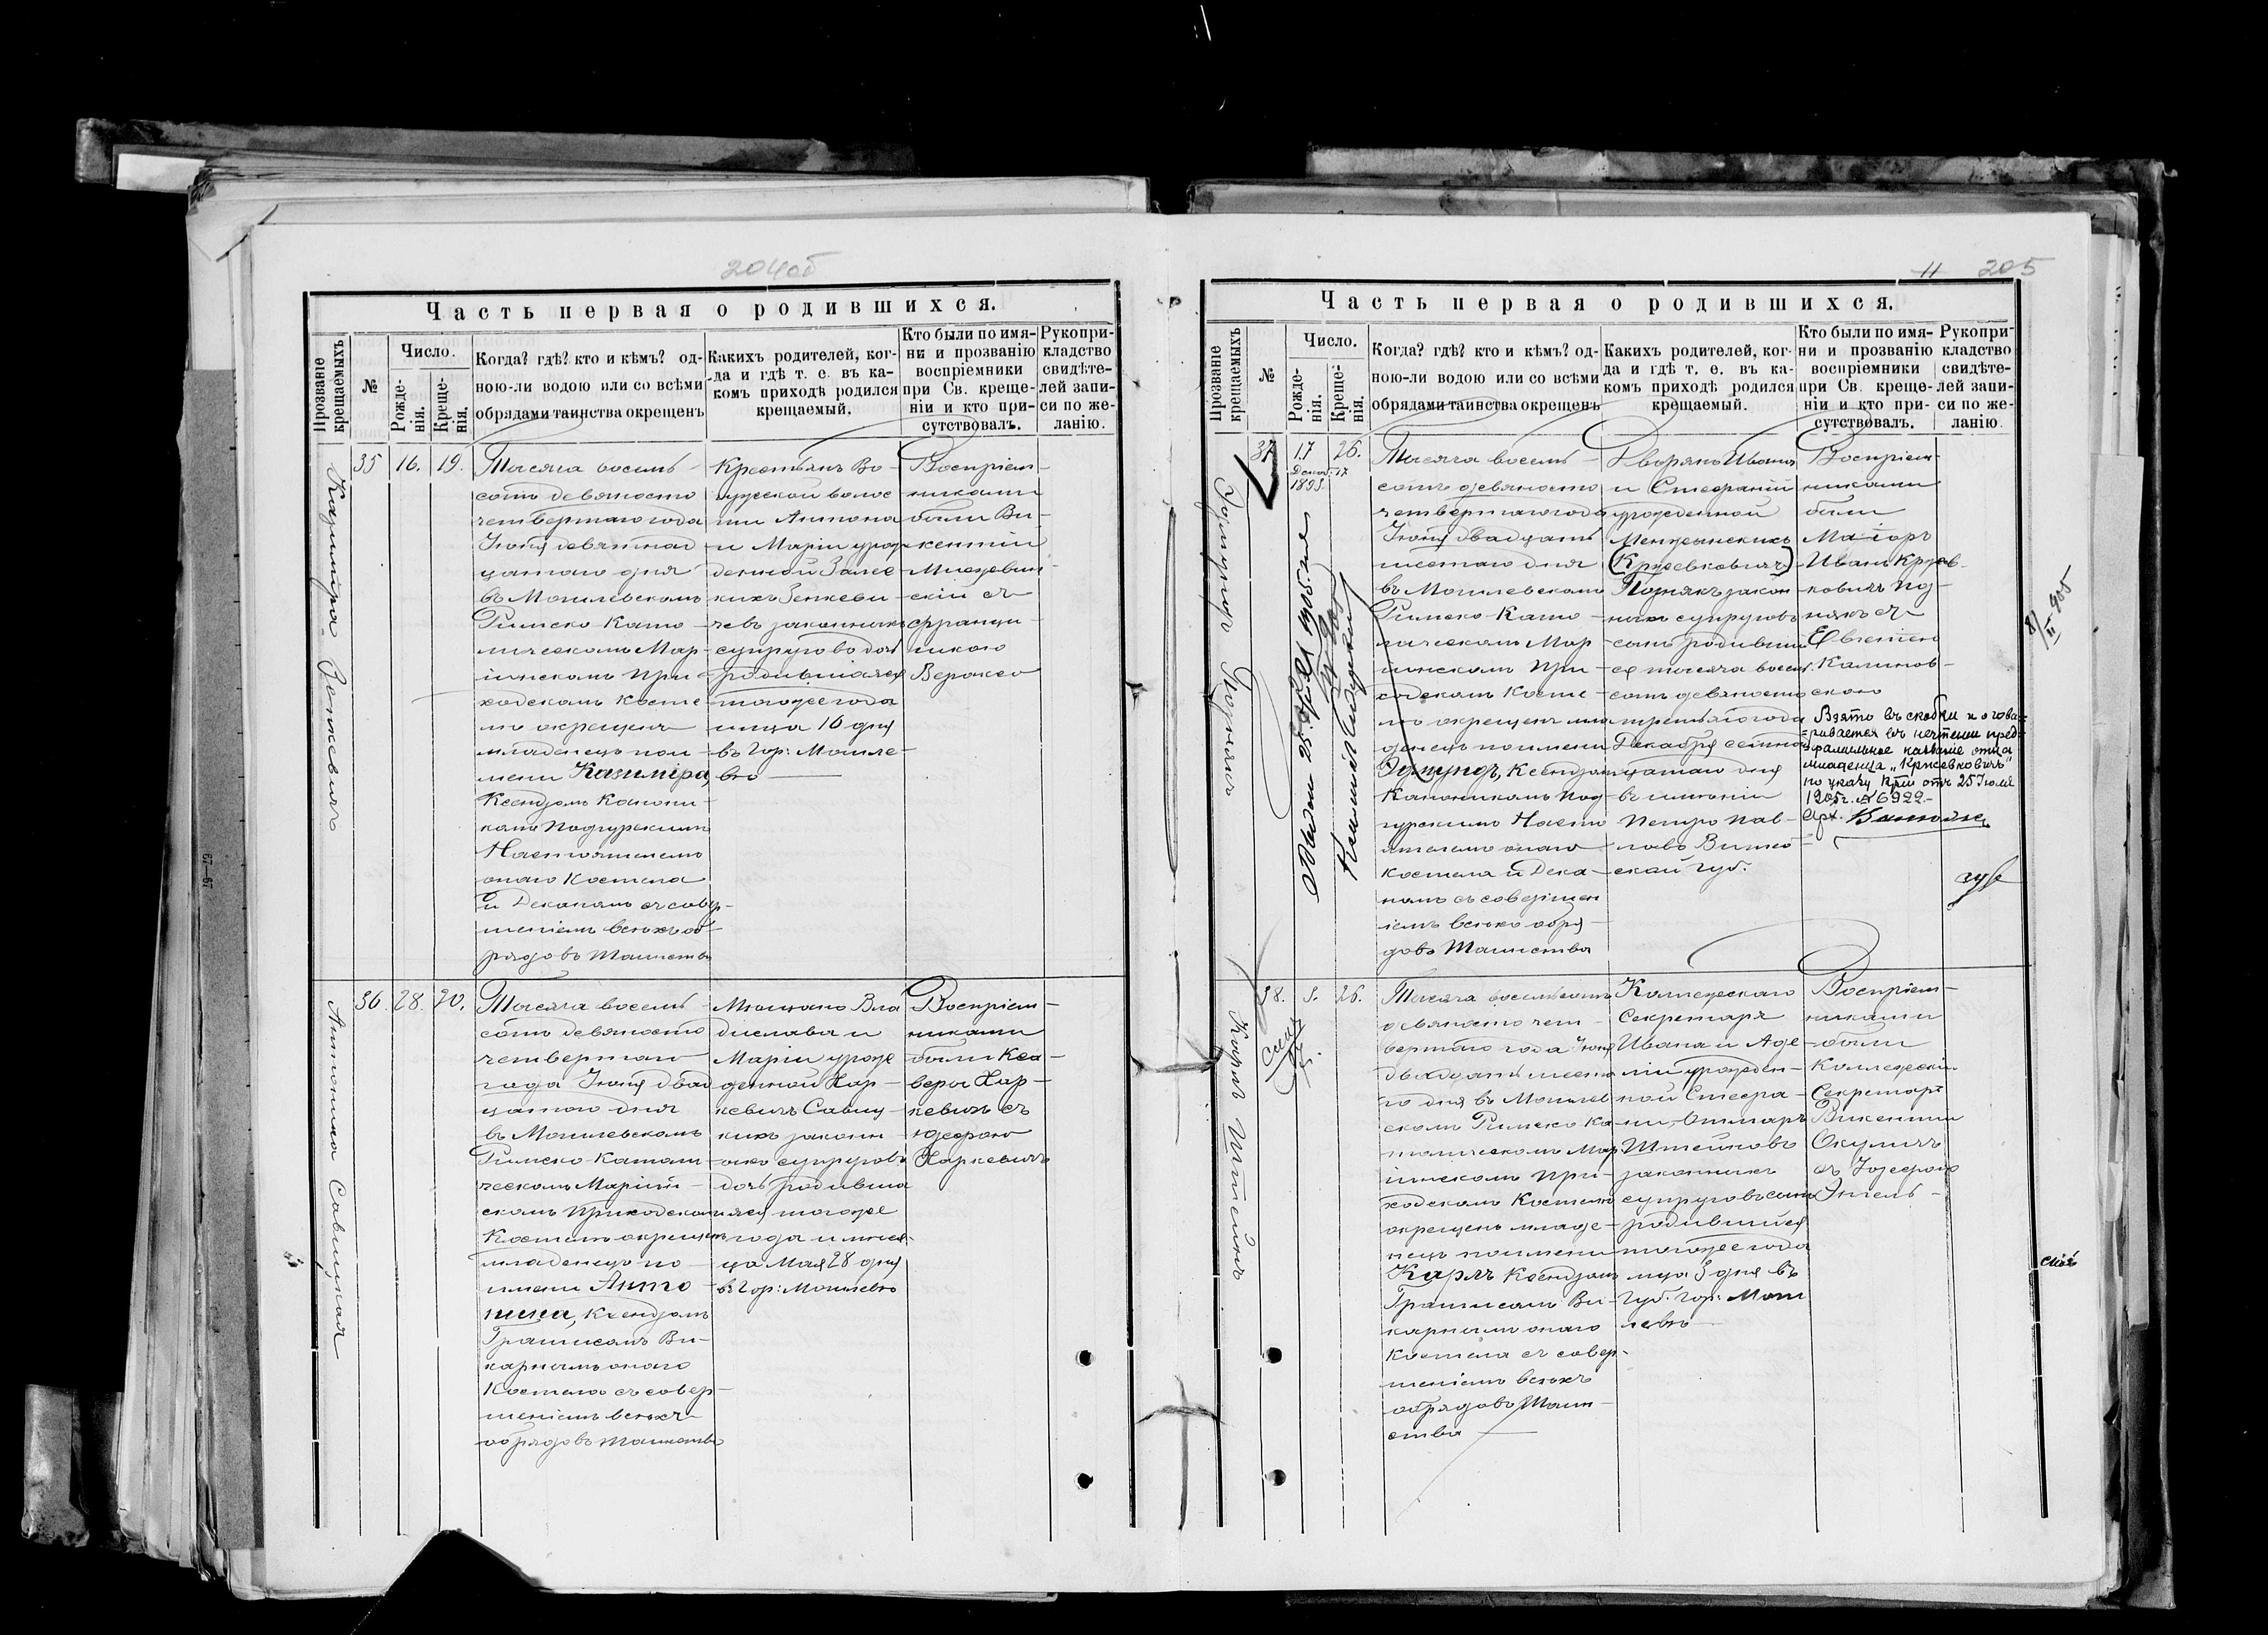 204об
Часть первая о родившихся.
Прозваніе крещаемыхъ
№
Число.
Рожде-
нія.
Креще-
нія.
Когда? гдѣ? кто и кѣмъ? од-
ною-ли водою или со всѣми
обрядами таинства окрещенъ
Какихъ родителей, ког-
да и гдѣ т. е. въ ка-
комъ приходѣ родился
крещаемый.
Кто были по имя-
ни и прозванію
воспріемники
при Св. креще-
ніи и кто при-
сутствовалъ.
Рукопри-
кладство
свидѣте-
лей запи-
си по же-
ланію.
Казиміра Зенкевичъ
35
16.
19.
Тысяча восемь
сотъ девяносто
четвертаго года
Іюня девятнад
цатаго дня
въ Могилевскомъ
Римско Като
лическомъ Мар
іинскомъ При
ходскомъ Косте
лѣ окрещенъ
младенецъ по и
мени Казиміра,
Ксендзомъ Канони
комъ Подгурскимъ
Настоятелемъ
онаго Костела
и Деканомъ съ совер-
шеніемъ всѣхъ об-
рядовъ Таинства
Крестьянъ Во-
лости Антона
и Маріи урож
денной Залес
кихъ Зенкеви
чевъ законныхъ
супруговъ дочь
родившаяся
тогоже года
м-ца 16 дня
въ Гор: Могиле-
вѣ
Воспріем-
никами
были Ви-
кентій
скій съ
Франци-
шкою
Антонина Савицкая
36.
28.
20.
Тысяча восемь
сотъ девяносто
четвертаго
года Іюня двад
цатаго дня
въ Могилевскомъ
Римско-Катали
ческомъ Маріин-
скомъ Приходскомъ
Костелѣ окрещенъ
младенецъ по
имени Анто
нина, Ксендзомъ
Ви-
карнымъ онаго
Костела съ совер-
шеніемъ всѣхъ
обрядовъ таинства
Мѣщанъ Вла
дислава и
Маріи урож
денной Хар-
кевичъ Савиц-
кихъ законн-
ыхъ супруговъ
дочь родивша
яся тогоже
года и мѣся-
ца Мая 28 дня
въ Гор: Могилевѣ
Воспріем-
никами
были Кса-
верій Хар-
кевичъ съ
Юзефою
Харкевичъ
11 205
Часть первая о родившихся.
Прозваніе крещаемыхъ
№
Число.
Рожде-
нія.
Креще-
нія.
Когда? гдѣ? кто и кѣмъ? од-
ною-ли водою или со всѣми
обрядами таинства окрещенъ
Какихъ родителей, ког-
да и гдѣ т. е. въ ка-
комъ приходѣ родился
крещаемый.
Кто были по имя-
ни и прозванію
воспріемники
при Св. креще-
ніи и кто при-
сутствовалъ.
Рукопри-
кладство
свидѣте-
лей запи-
си по же-
ланію.
Эдмундъ Познякъ
37
17
Декаб. 17
1893.
26.
Тысяча восемь
сотъ девяносто
четвертаго года
Іюня двадцать
шестаго дня
въ Могилевскомъ
Римско-Като-
лическомъ Мар
іинскомъ При
ходскомъ Косте
лѣ окрещенъ мла
денецъ по имени
Эдмундъ, Ксендзомъ
Каноникомъ Под
гурскимъ Насто
ятелемъ онаго
костела и Дека-
номъ съ совершен
іемъ всѣхъ обря-
довъ Таинства
Дворянъ Ивана
и Стефаніи
урожденной
Менжынскихъ
(Кржевковичъ)
Познякъ закон
ныхъ супруговъ
сынъ родивший
ся тысяча восемь
сотъ девяносто
третьяго года
Декабря семнад
цатаго дня
въ имѣніи
Петро-Пав-
лово Витеб
ской Губ.
Воспріем-
никами
были
Маіоръ
Иванъ Кржев-
ковичъ Поз-
някъ съ
Евгеніею
Калинов-
скою
Взято въ скобки и огова-
ривается въ
фамильное названіе отца
младенца „Кржевковичъ"
по указу Крiи отъ 25 Іюля
1905г. № 6922.
8/II 905
Карлъ Штейнъ
38.
5.
26.
Тысяча восемьсотъ
девяносто чет-
вертаго года Іюня
двадцать шеста
го дня въ Могилев
скомъ Римско Ка-
толическомъ Мар
іинскомъ При-
ходскомъ Костелѣ
окрещенъ младе-
нецъ по имени
Карлъ Ксендзомъ
Ви-
карнымъ онаго
Костела съ совер-
шеніемъ всѣхъ
обрядовъ Таин-
ства
Коллежскаго
Секретаря
Ивана и Аде-
ли урожден-
ной Стефа-
Штейновъ
законныхъ
супруговъ сынъ
родившійся
тогоже года
м-ца 5 дня въ
Губ. гор: Моги
левѣ
Воспріем-
никами
были
Коллежскій
Секретарь
Викентій
Окуличъ
съ Іозефою
Энгель